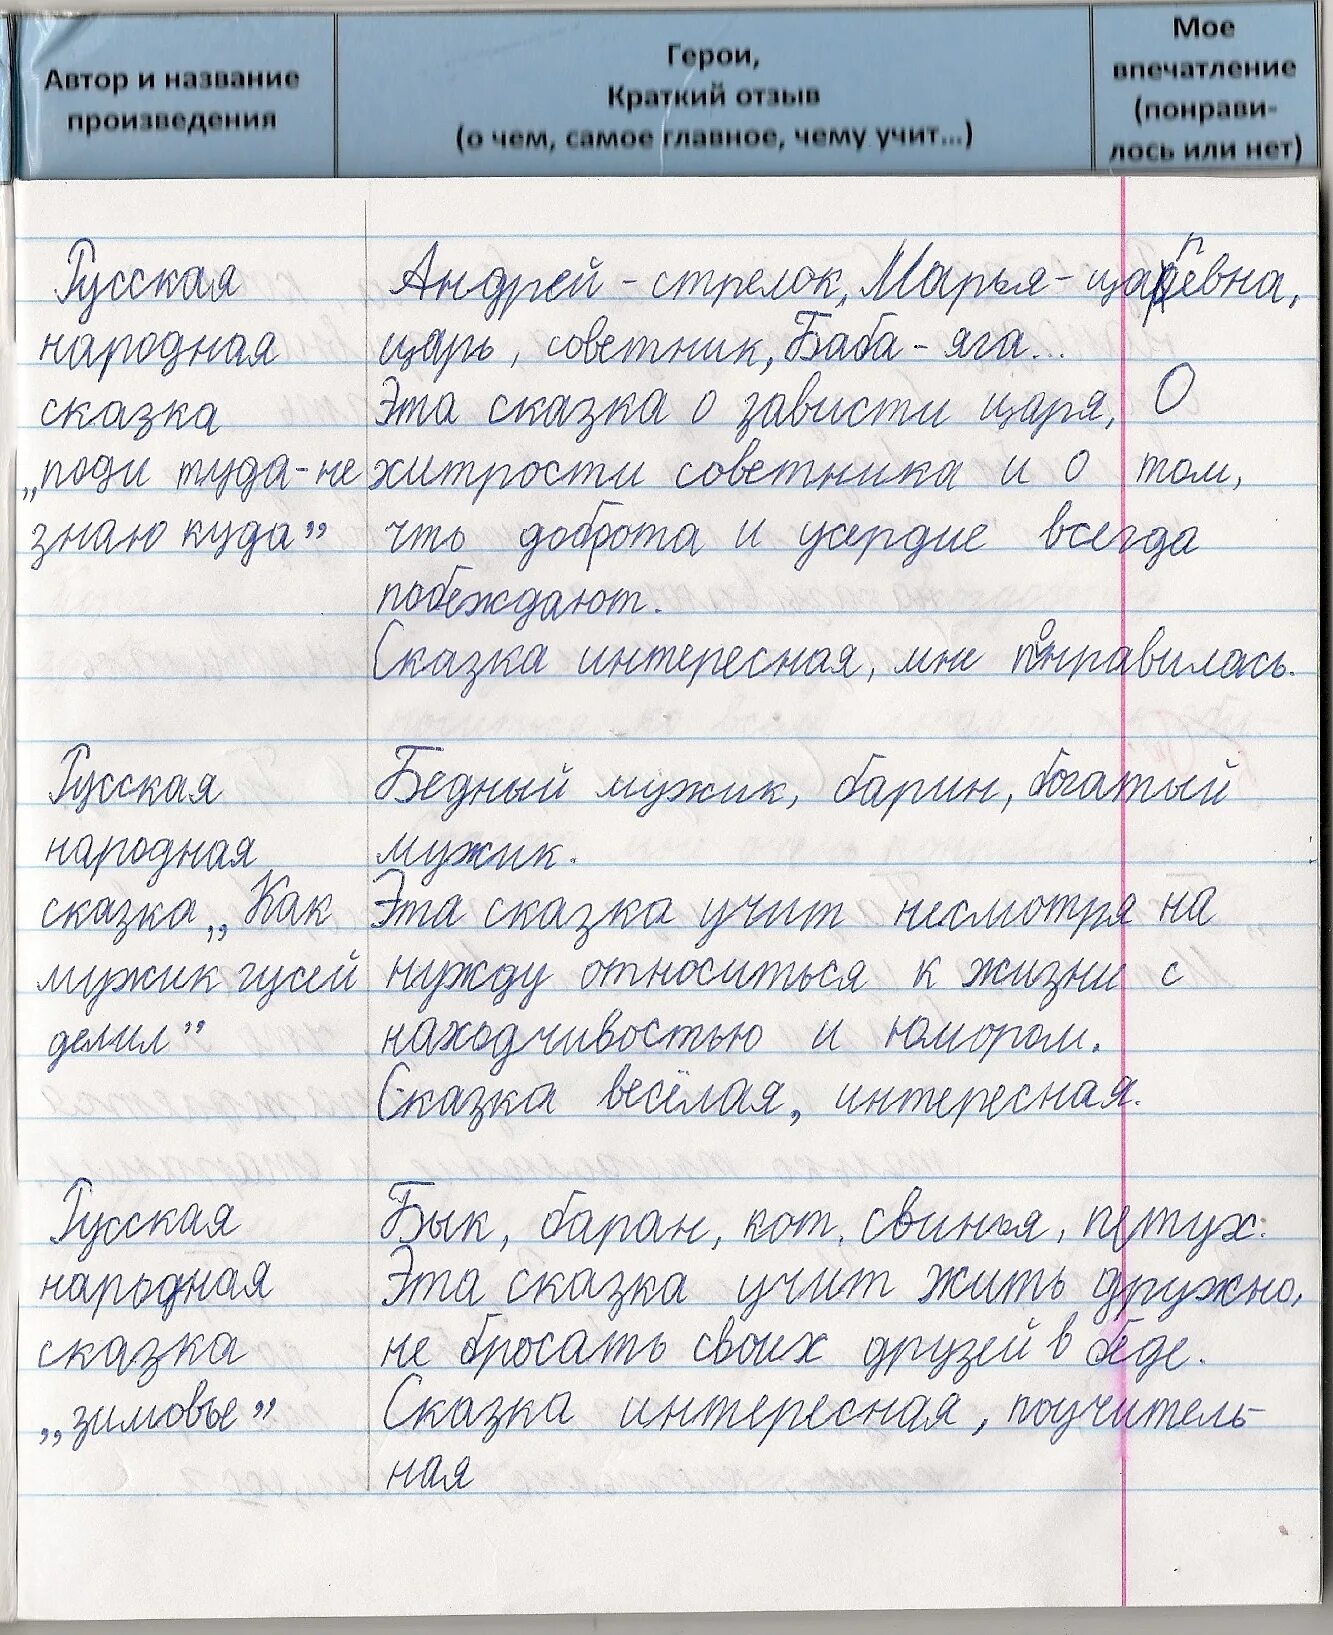 Автор и название
произведения
Герои,
Краткий отзыв
(о чем, самое главное, чему учит...)
Мое
впечатление
(понрави-
лось или нет)
Русская
народная
сказка
„поди туда-не
знаю куда”
Андрей - стрелок, Марья - царевна,
царь, советник, Баба - яга...
Эта сказка о зависти царя, О
хитрости советника и о том,
что доброта и усердие всегда
побеждают.
Сказка интересная, мне понравилась.
Русская
народная
сказка „Как
мужик гусей
делил”
Бедный мужик, барин, богатый
мужик.
Эта сказка учит несмотря на
нужду относиться к жизни с
находчивостью и юмором.
Сказка весёлая, интересная.
Русская
народная
сказка
„зимовье”
Бык, баран, кот, свинья, петух.
Эта сказка учит жить дружно,
не бросать своих друзей в беде.
Сказка интересная, поучитель-
ная